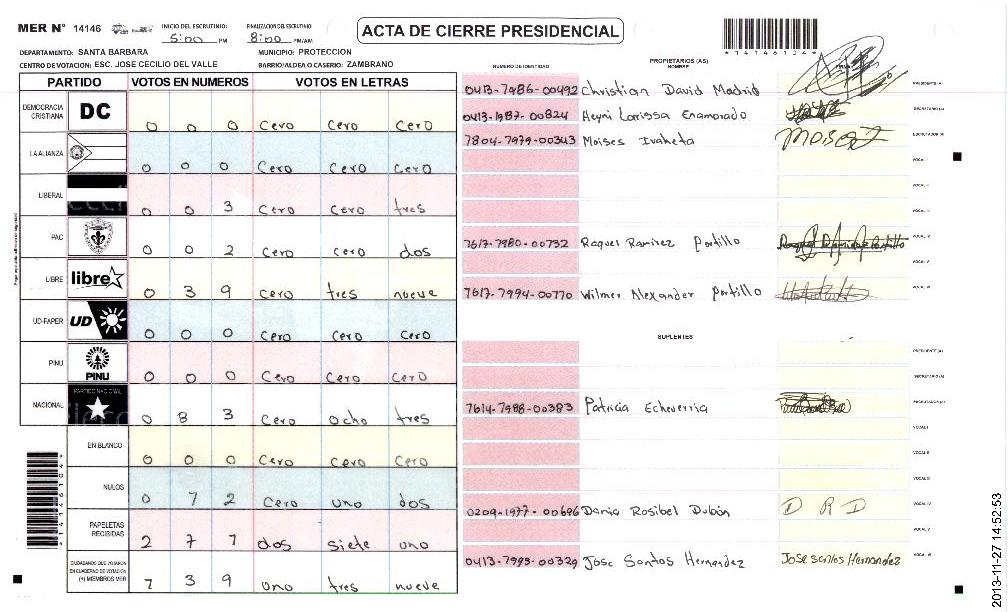 MER N° 14146 INICIO DEL ESCRUTINIO: 5:00 PM FINALIZACION DEL ESCRUTINIO 8:00 PM/AM
ACTA DE CIERRE PRESIDENCIAL
*14146134*
DEPARTAMENTO: SANTA BARBARA MUNICIPIO: PROTECCION
CENTRO DE VOTACION: ESC. JOSE CECILIO DEL VALLE BARRIO/ALDEA O CASERIO: ZAMBRANO
PARTIDO VOTOS EN NUMEROS VOTOS EN LETRAS
DEMOCRACIA CRISTIANA DC 0 0 0 Cero Cero Cero
LA ALIANZA 0 0 0 Cero Cero Cero
LIBERAL 0 0 3 Cero Cero tres
PAC 0 0 2 Cero Cero dos
LIBRE libre 0 3 9 Cero tres nueve
UD-FAPER UD 0 0 0 Cero Cero Cero
PINU PINU 0 0 0 Cero Cero Cero
NACIONAL PARTIDO NACIONAL 0 8 3 Cero Ocho tres
EN BLANCO 0 0 0 Cero Cero Cero
NULOS 0 1 2 Cero uno dos
PAPELETAS RECIBIDAS 2 7 1 dos siete uno
CIUDADANOS QUE VOTARON EN CUADERNO DE VOTACION (+) MIEMBROS MER 1 3 9 uno tres nueve
PROPIETARIOS (AS)
NUMERO DE IDENTIDAD NOMBRE FIRMA
0413-1986-00492 Christian David Madrid PRESIDENTE (A)
0413-1987-00824 Heyni Larissa Enamorado SECRETARIO (A)
1804-1979-00343 Moises Ivaheta Moises I ESCRUTADOR (A)
VOCAL I
VOCAL II
VOCAL III
1617-1980-00732 Raquel Ramirez Portillo VOCAL IV
VOCAL V
1617-1994-00170 Wilmer Alexander Portillo VOCAL VI
SUPLENTES
PRESIDENTE (A)
SECRETARIO (A)
1614-1988-00383 Patricia Echeverria ESCRUTADOR (A)
VOCAL I
VOCAL II
VOCAL III
0209-1977-00696 Dania Rosibel Dubón D R D VOCAL IV
VOCAL V
0413-1993-00329 Jose Santos Hernandez Jose Santos Hernandez VOCAL VI
2013-11-27 14:52:53